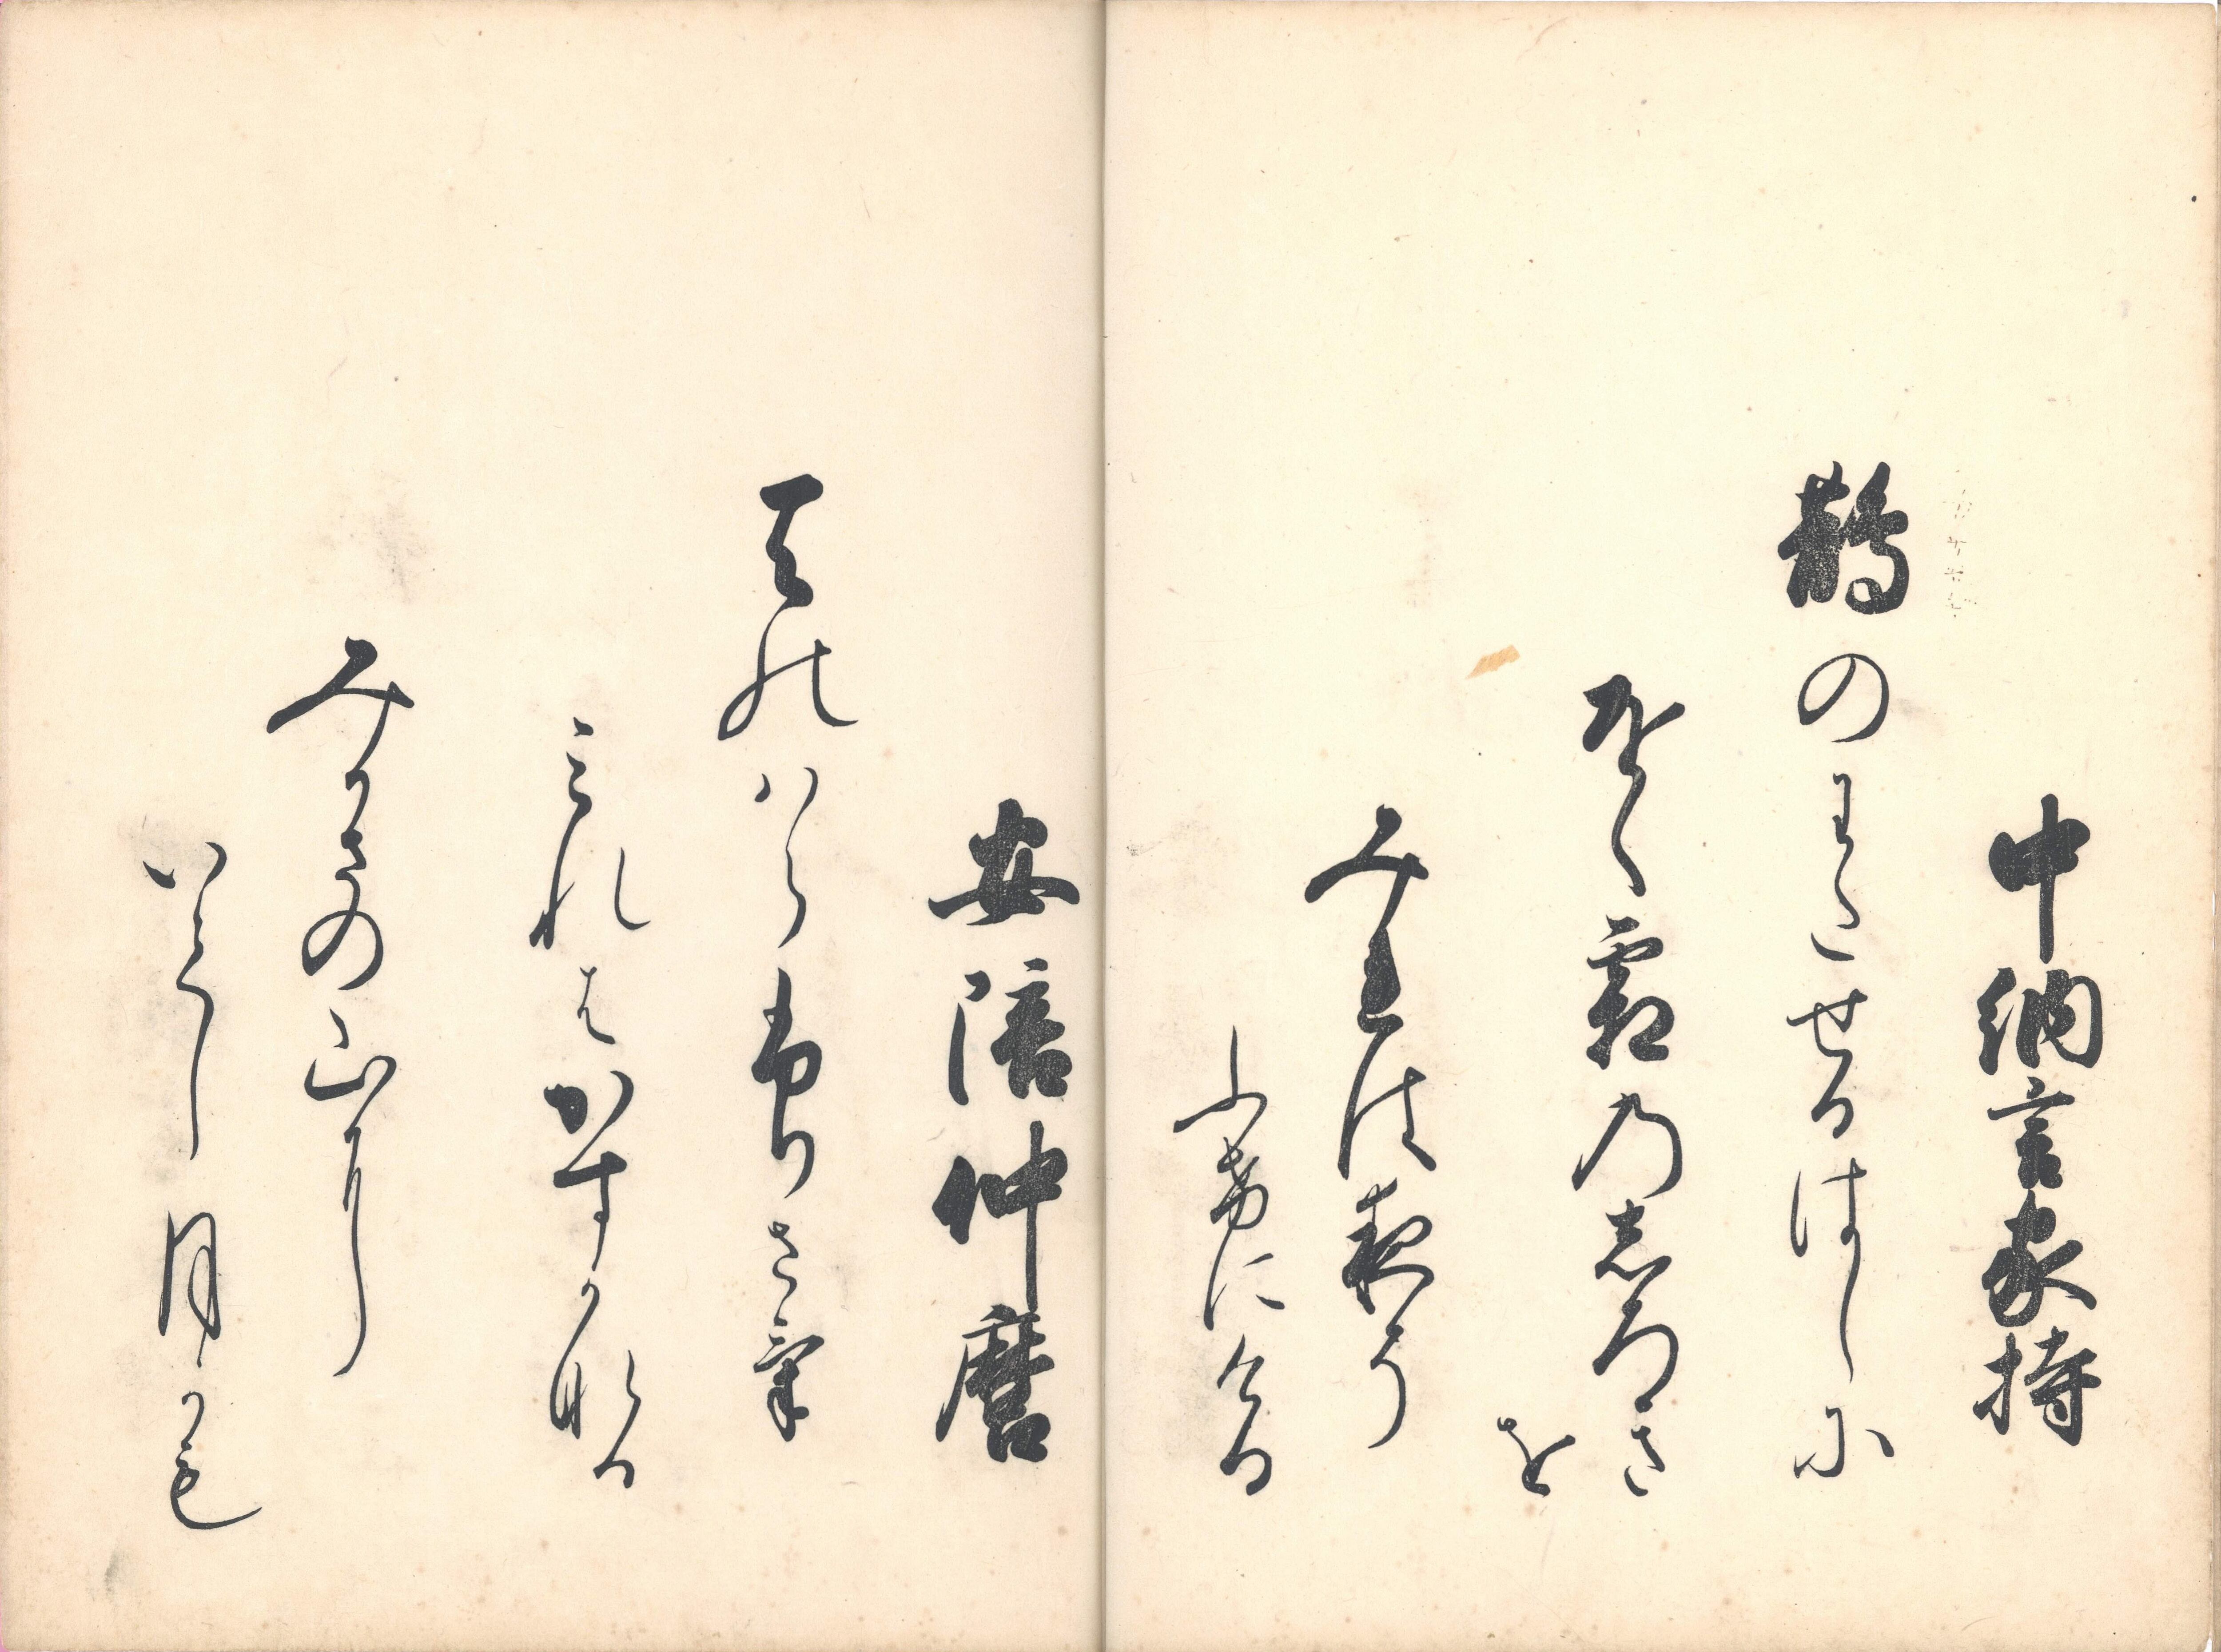 中納言家持
鵲のわたせるはしに
おく霜乃志ろき
を
みれは夜そ
ふ希にける
安陪仲麿
天のはらふりさけ
三れはかすかなる
みかさの山にし
いてし月かも